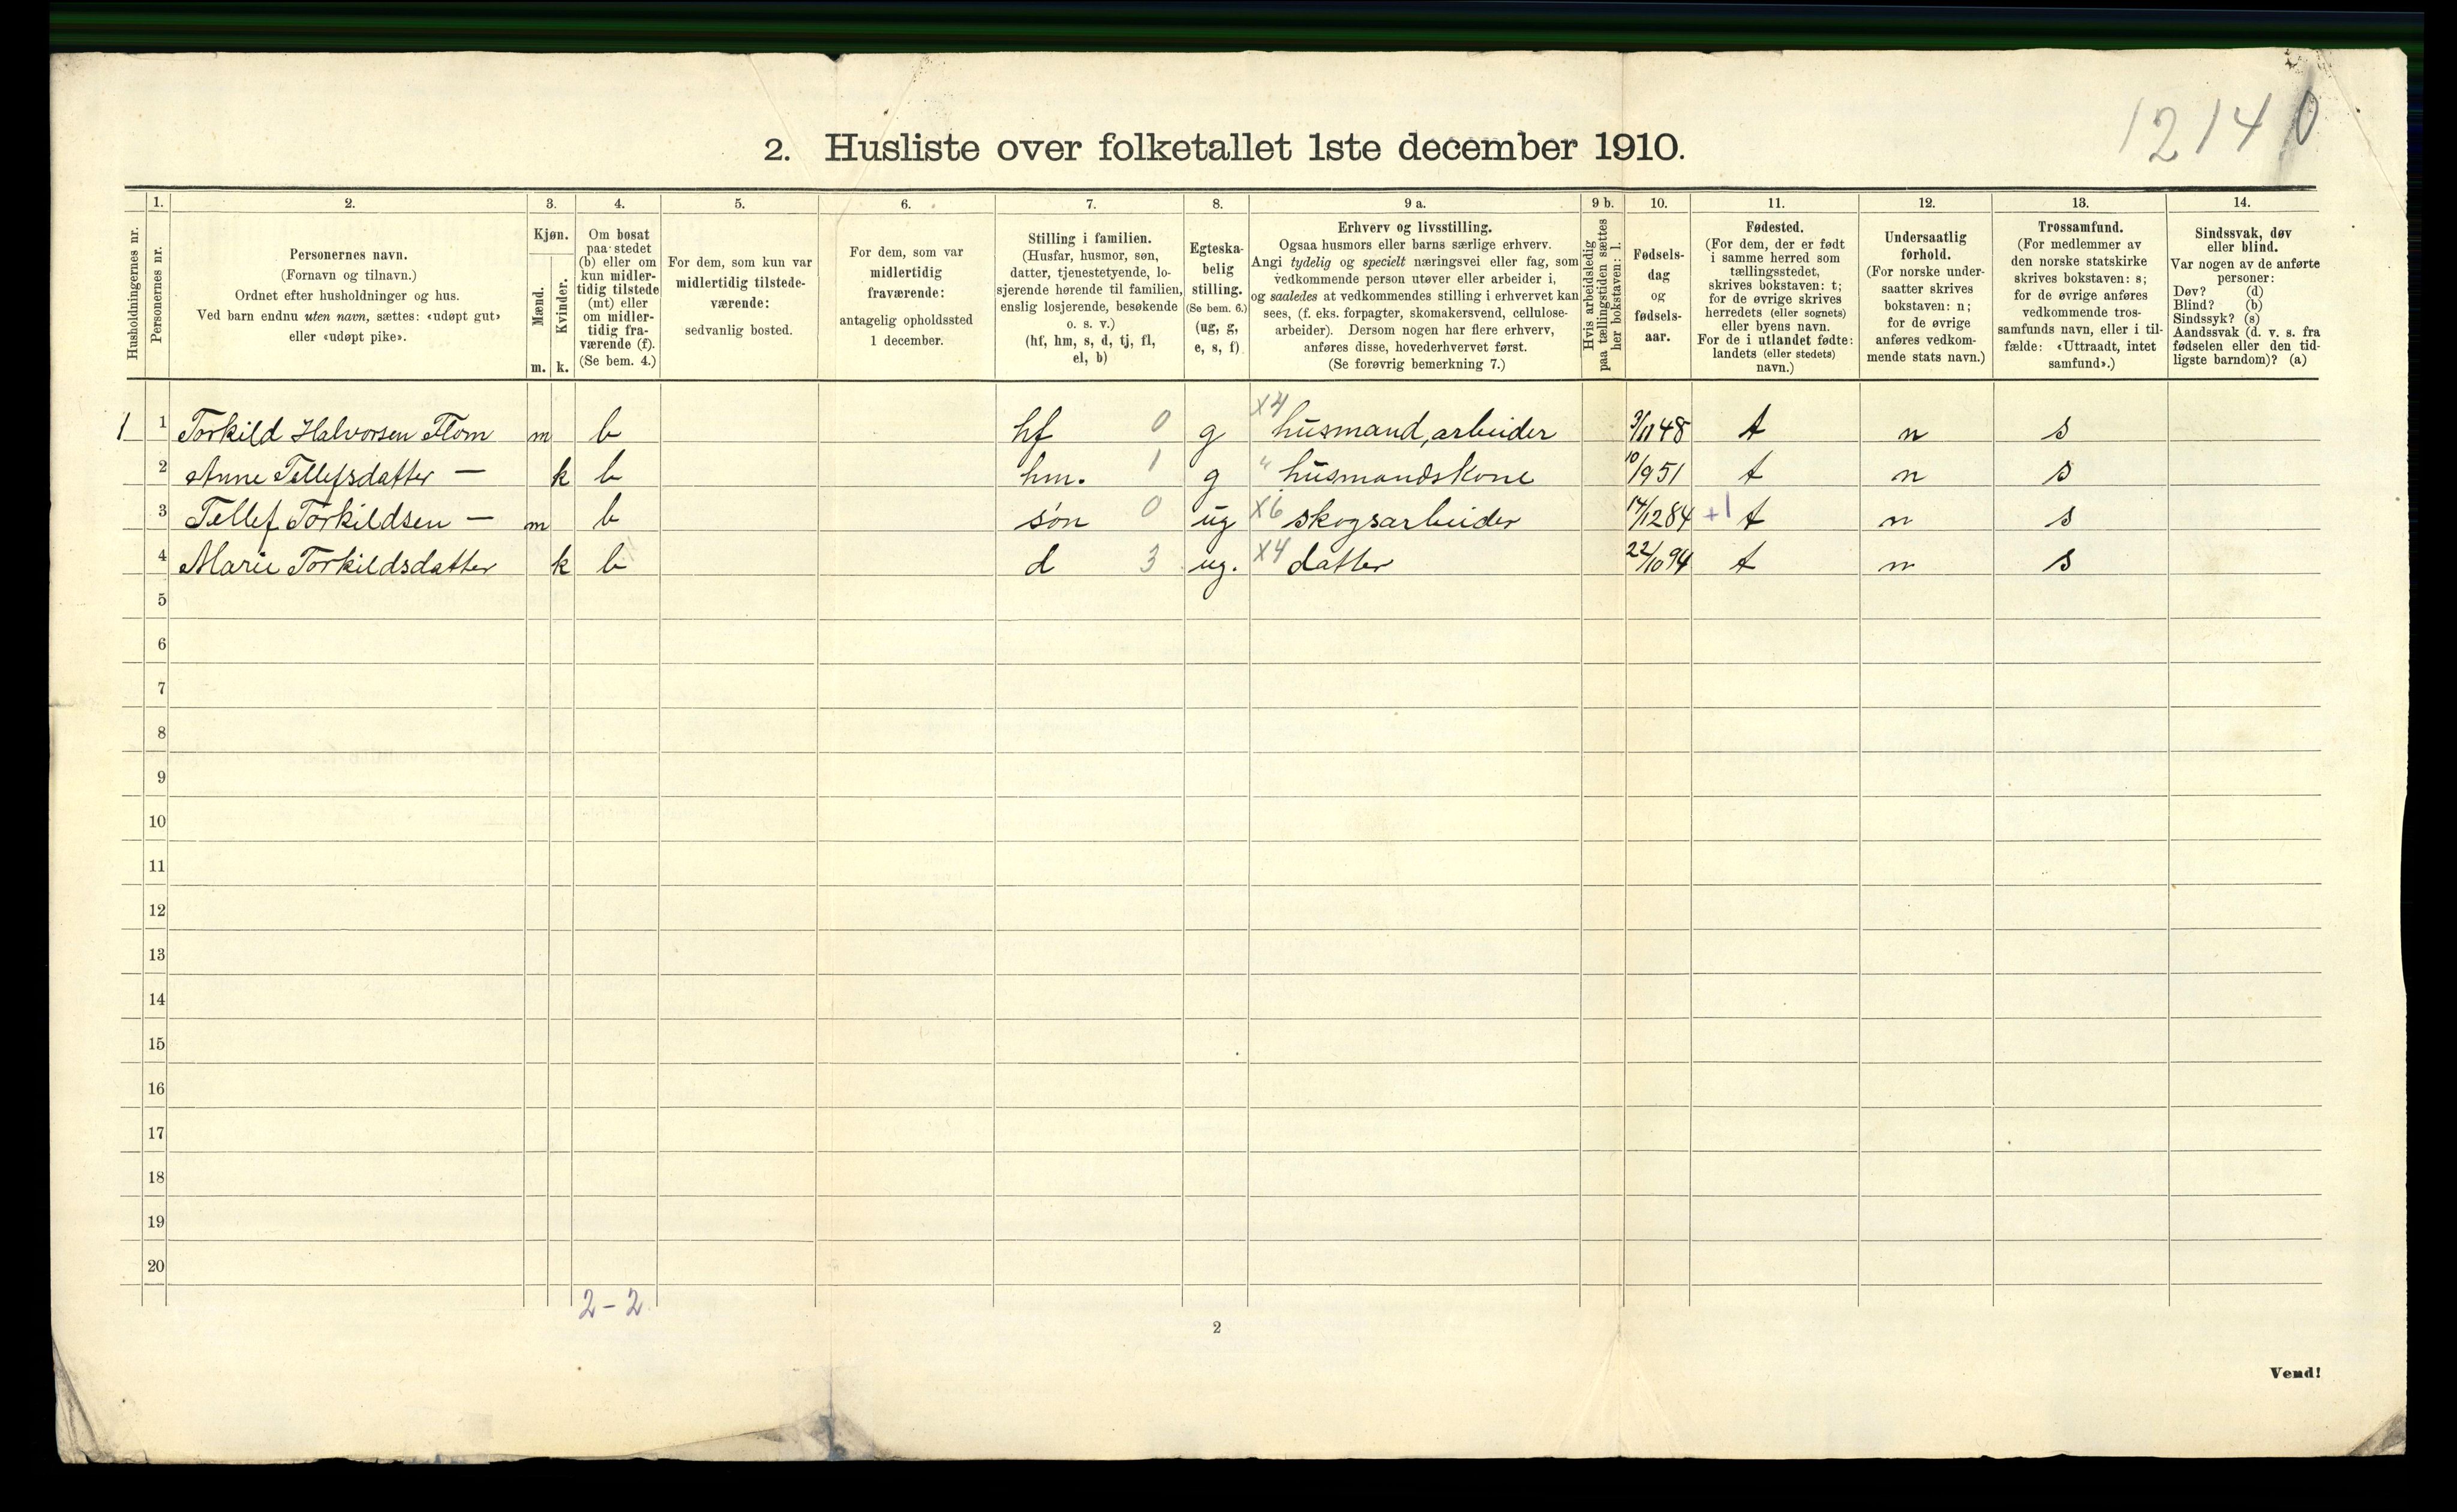 12140
2. Husliste over folketallet 1ste december 1910.
Husholdningernes nr.
1.
Personernes nr.
2.
Personernes navn.
(Fornavn og tilnavn.)
Ordnet efter husholdninger og hus.
Ved barn endnu uten navn, sættes: «udøpt gut»
eller «udøpt pike».
3.
Kjøn.
Mænd.
Kvinder.
m. k.
4.
Om bosat
paa stedet
(b) eller om
kun midler-
tidig tilstede
(mt) eller
om midler-
tidig fra-
værende (f).
(Se bem. 4.)
5.
For dem, som kun var
midlertidig tilstede-
værende:
sedvanlig bosted.
6.
For dem, som var
midlertidig
fraværende:
antagelig opholdssted
1 december.
7.
Stilling i familien.
(Husfar, husmor, søn,
datter, tjenestetyende, lo-
sjerende hørende til familien,
enslig losjerende, besøkende
o. s. v.)
(hf, hm, s, d, tj, fl,
el, b)
8.
Egteska-
belig
stilling.
(Se bem. 6.)
(ug, g,
e, s, f)
9 a.
Erhverv og livsstilling.
Ogsaa husmors eller barns særlige erhverv.
Angi tydelig og specielt næringsvei eller fag, som
vedkommende person utøver eller arbeider i,
og saaledes at vedkommendes stilling i erhvervet kan
sees, (f. eks. forpagter, skomakersvend, cellulose-
arbeider). Dersom nogen har flere erhverv,
anføres disse, hovederhvervet først.
(Se forøvrig bemerkning 7.)
9 b.
Hvis arbeidsledig
paa tællingstiden sættes
her bokstaven: l.
10.
Fødsels-
dag
og
fødsels-
aar.
11.
Fødested.
(For dem, der er født
i samme herred som
tællingsstedet,
skrives bokstaven: t;
for de øvrige skrives
herredets (eller sognets)
eller byens navn.
For de i utlandet fødte:
landets (eller stedets)
navn.)
12.
Undersaatlig
forhold.
(For norske under-
saatter skrives
bokstaven: n;
for de øvrige
anføres vedkom-
mende stats navn.)
13.
Trossamfund.
(For medlemmer av
den norske statskirke
skrives bokstaven: s;
for de øvrige anføres
vedkommende tros-
samfunds navn, eller i til-
fælde: «Uttraadt, intet
samfund».)
14.
Sindssvak, døv
eller blind.
Var nogen av de anførte
personer:
Døv? (d)
Blind? (b)
Sindssyk? (s)
Aandssvak (d. v. s. fra
fødselen eller den tid-
ligste barndom)? (a)
1 1 Torkild Halvorsen Flom m b hf 0 g X4 husmand, arbeider 3/11 48 t n s
2 Anne Tellefsdatter — k b hm. 1 g " husmandskone 10/9 51 t n s
3 Tellef Torkildsen — m b søn 0 ug X6 skogsarbeider 14/12 84 +1 t n s
4 Marie Torkildsdatter k b d 3 ug. X4 datter 22/10 94 t n s
5
6
7
8
9
10
11
12
13
14
15
16
17
18
19
20
2-2
2
Vend!